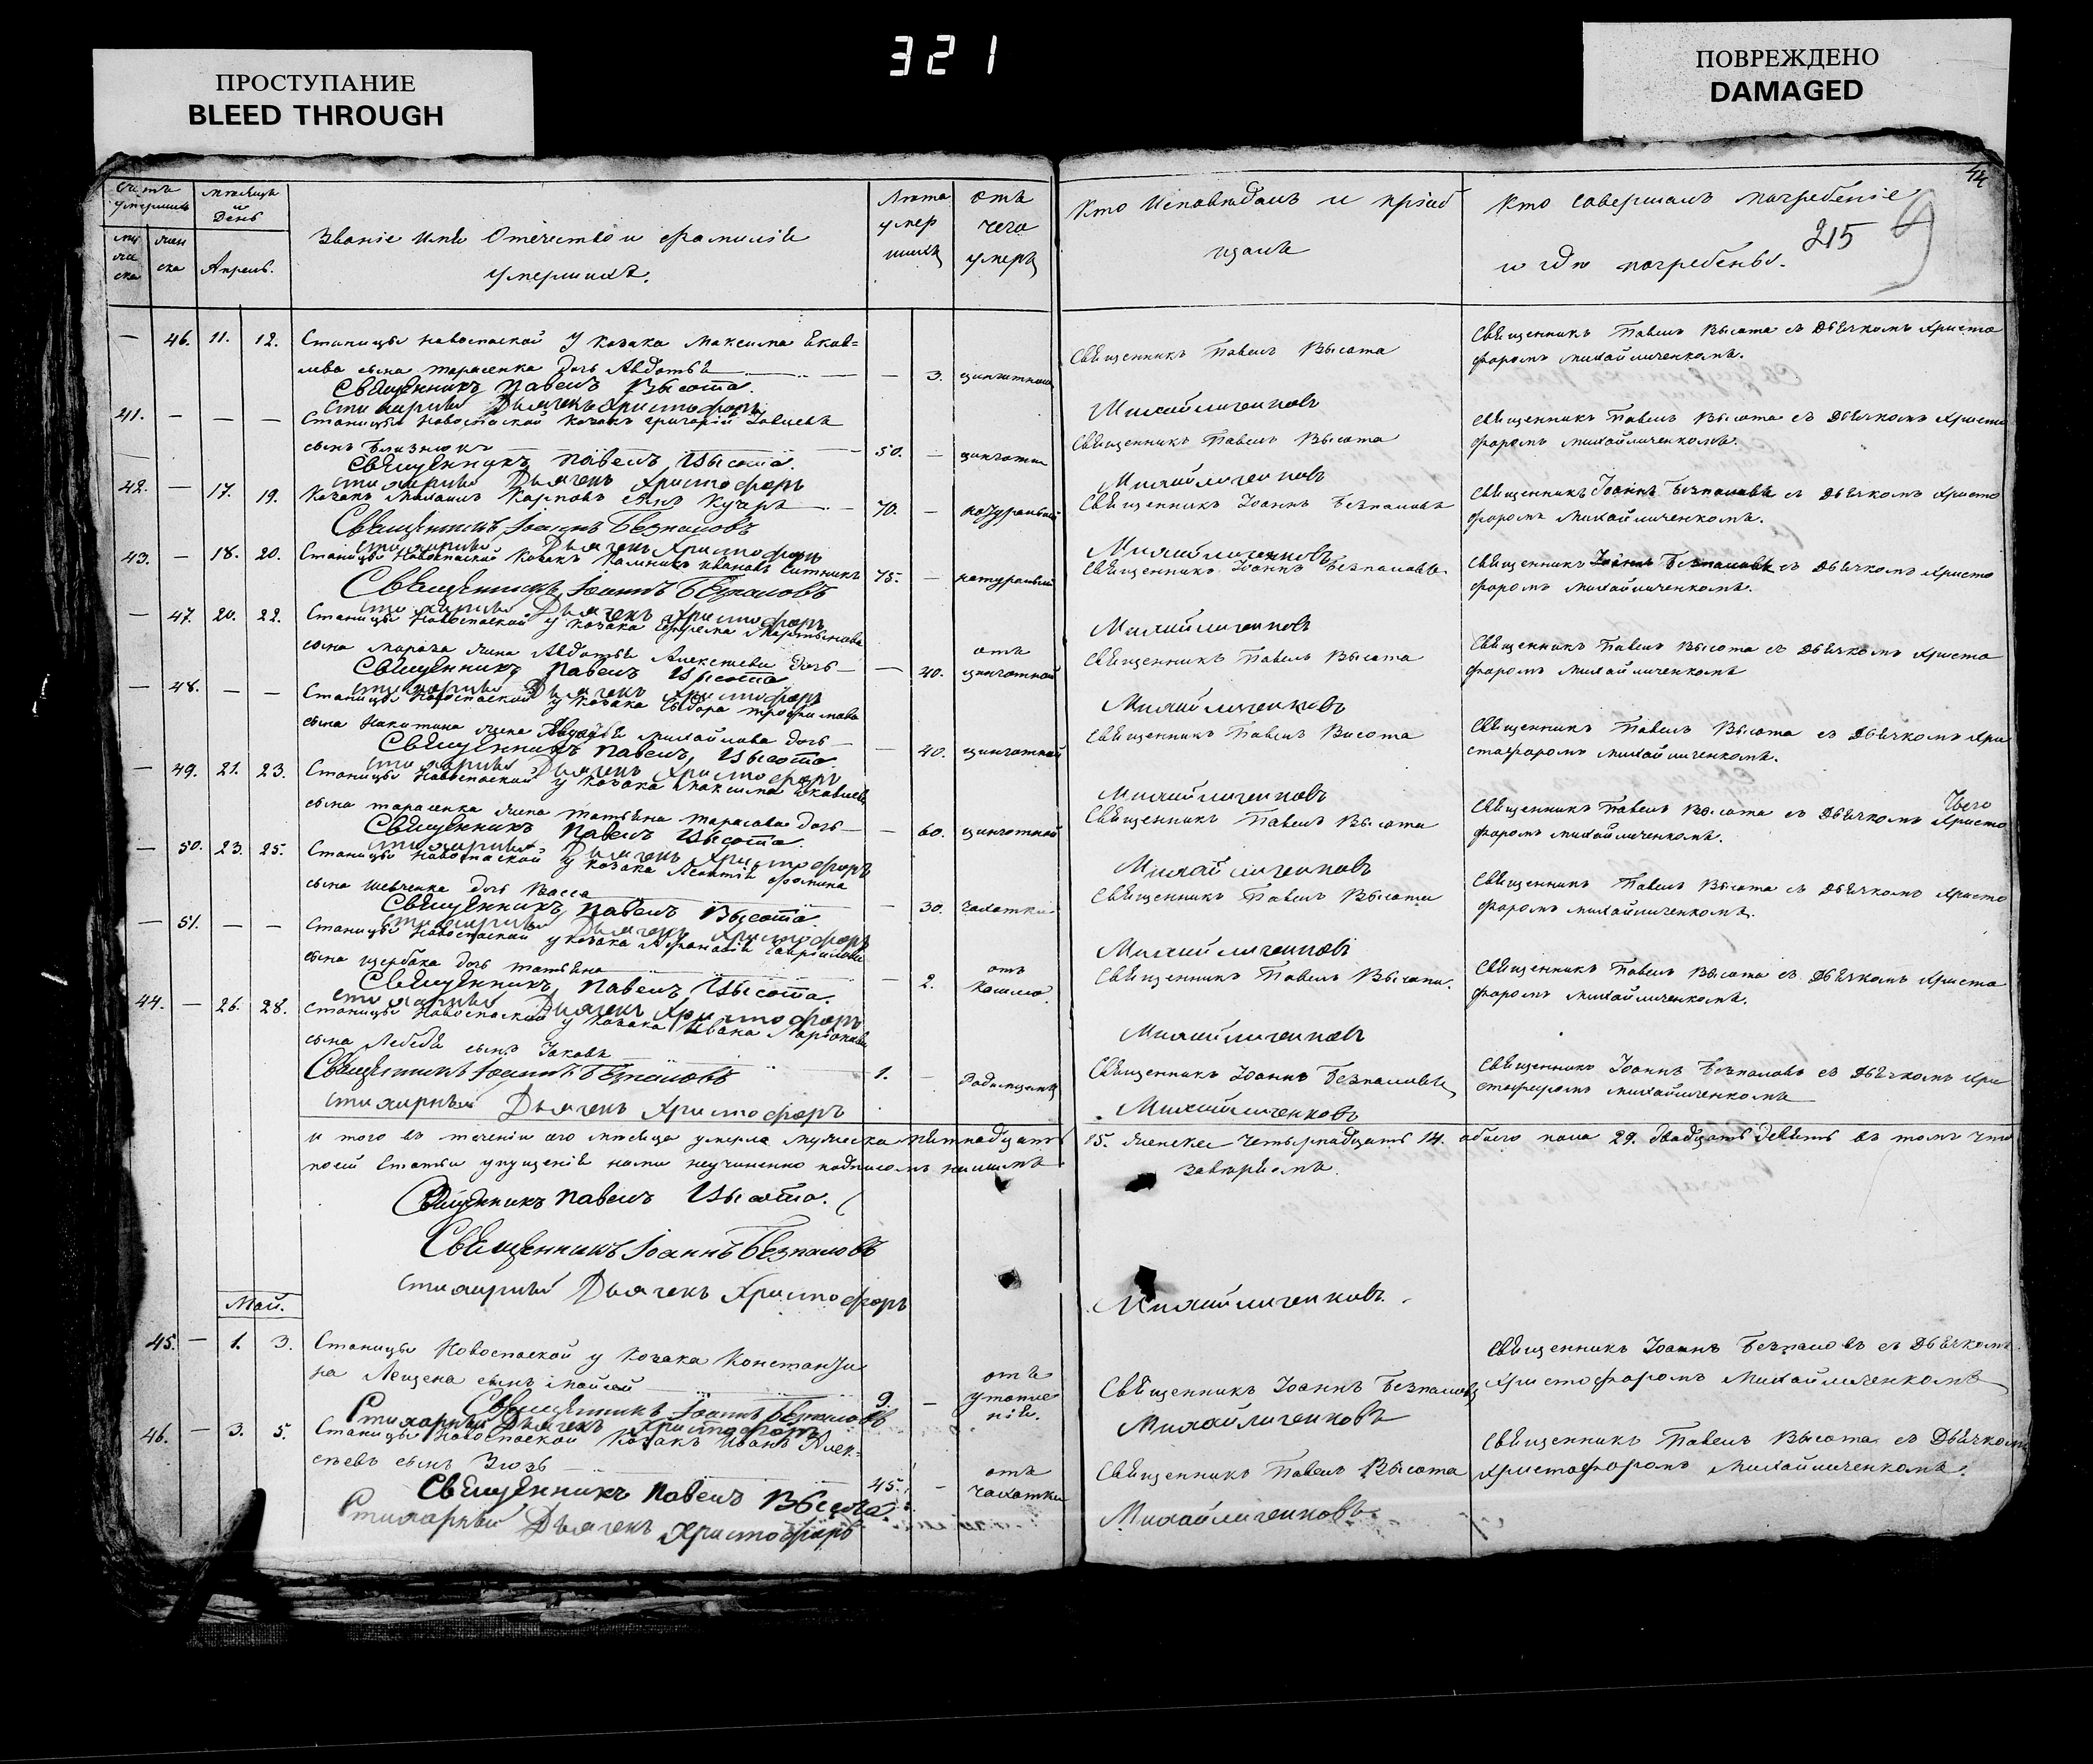 321
ПРОСТУПАНИЕ
BLEED THROUGH
ПОВРЕЖДЕНО
DAMAGED
44
215
Счетъ умершихъ
Мѣсяцъ и День
Апрель.
Званіе имя Отечество и фамилія
умершихъ.
Лѣта умершихъ
отъ чего умеръ
Кто Исповѣдалъ и пріоб
щалъ
Кто совершалъ погребеніе
и гдѣ погребены.
— 46. 11. 12. Станицы Новоспаской у козака Максима Еков=
лева сына тарасенка дочь Авдотья — 3. цинготная
Священникъ Павелъ Высота
Священникъ Павелъ Высота съ Дьячкомъ Христо
форомъ михайличенкомъ.
Священникъ Павелъ Высота.
стихарный Дьячекъ Христофоръ Михайличенковъ
41. — — — Станицы Новоспаской козакъ григорій Іовлевъ
сынъ Близнюкъ 50. —
Священникъ Павелъ Высота
Священникъ Павелъ Высота съ Дьячкомъ Христо
форомъ михайличенкомъ.
Священникъ Павелъ Высота.
стихарный Дьячекъ Христофоръ Михайличенковъ
42. — 17. 19. Козакъ Михаилъ Карповъ сынъ Кухарь 70. — натуральной
Священникъ Іоаннъ Безпаловъ
Священникъ Іоаннъ Безпаловъ съ Дьячкомъ Христо
форомъ михайличенкомъ.
Священникъ Іоаннъ Безпаловъ
стихарный Дьячекъ Христофоръ Михайличенковъ
43. — 18. 20. Станицы Новоспаской Козакъ Калиникъ Ивановъ Ситникъ 75. — натуральной
Священникъ Іоаннъ Безпаловъ
Священникъ Іоаннъ Безпаловъ съ Дьячкомъ Христо
форомъ михайличенкомъ.
Священникъ Іоаннъ Безпаловъ
стихарный Дьячекъ Христофоръ Михайличенковъ
— 47. 20. 22. Станицы Новоспаской у козака Ефрема Мартынова
сына жена Авдотья Алексѣева дочь — 40. отъ цинготной
Священникъ Павелъ Высота
Священникъ Павелъ Высота съ Дьячкомъ Христо
форомъ михайличенкомъ
Священникъ Павелъ Высота
стихарный Дьячекъ Христофоръ Михайличенковъ
— 48. — — Станицы Новоспаской у козака Сидора трофимова
сына Никитина жена Михайлова дочь — 40. цинготной
Священникъ Павелъ Высота
Священникъ Павелъ Высота съ Дьячкомъ Хри
стофоромъ михайличенкомъ.
Священникъ Павелъ Высота
стихарный Дьячекъ Христофоръ Михайличенковъ
— 49. 21. 23. Станицы Новоспаской у козака Максима Яковлева
сына тарасенка жена татьяна тарасова дочь — 60. цинготной
Священникъ Павелъ Высота
Священникъ Павелъ Высота съ Дьячкомъ Христо
форомъ михайличенкомъ.
Священникъ Павелъ Высота.
стихарный Дьячекъ Христофоръ Михайличенковъ
— 50. 23. 25. Станицы Новоспаской у козака Леонтія фомина
сына шевченка дочь Васса — 30. чахотки
Священникъ Павелъ Высота
Священникъ Павелъ Высота съ Дьячкомъ Христо
форомъ михайличенкомъ.
Священникъ Павелъ Высота
стихарный Дьячекъ Христофоръ Михайличенковъ
— 51. — — Станицы Новоспаской у козака Афанасія Гаврилова
сына щербака дочь татьяна — 2. отъ кашлю.
Священникъ Павелъ Высота.
Священникъ Павелъ Высота съ Дьячкомъ Христо
форомъ михайличенкомъ.
Священникъ Павелъ Высота.
стихарный Дьячекъ Христофоръ Михайличенковъ
44. — 26. 28. Станицы Новоспаской у козака Ивана
сына Лебедя сынъ Іаковъ 1. — Родимцемъ
Священникъ Іоаннъ Безпаловъ
Священникъ Іоаннъ Безпаловъ съ Дьячкомъ Хри
стофоромъ михайличенкомъ
Священникъ Іоаннъ Безпаловъ
стихарный Дьячекъ Христофоръ Михайличенковъ
и того въ теченіи сего мѣсяца умерло мужеска пятнадцать 15. женска Четырнадцать 14. обоего пола 29. двадцать девять въ томъ что
поей Статьи упущенія нами неучиненно подписомъ нашимъ заверяемъ.
Священникъ Павелъ Высота.
Священникъ Іоаннъ Безпаловъ
стихарный Дьячекъ Христофоръ Михайличенковъ.
Май.
45. — 1. 3. Станицы Новоспаской у козака Константи
на Лещена сынъ 9. — отъ утопленія.
Священникъ Іоаннъ Безпаловъ
Священникъ Іоаннъ Безпаловъ съ Дьячкомъ
Христофоромъ Михайличенкомъ
Священникъ Іоаннъ Безпаловъ
Стихарный Дьячекъ Христофоръ Михайличенковъ
46. — 3. 5. Станицы Новоспаской Козакъ Иванъ Алек=
сѣевъ сынъ 45. — отъ чахотки
Священникъ Павелъ Высота
Священникъ Павелъ Высота съ Дьячкомъ
Христофоромъ Михайличенкомъ.
Священникъ Павелъ Высота.
Стихарный Дьячекъ Христофоръ Михайличенковъ.